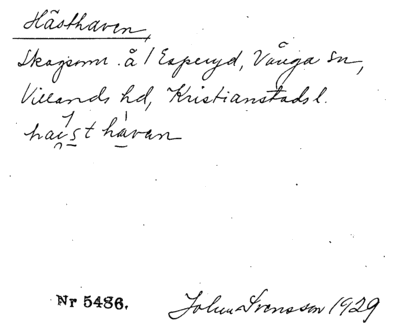 Hästhaven,
Skogsomr. å 1 Esperyd, Vånga sn,
Villands hd, Kristianstads l.
hai̯st hàvan
Nr 5486. John Svensson 1929